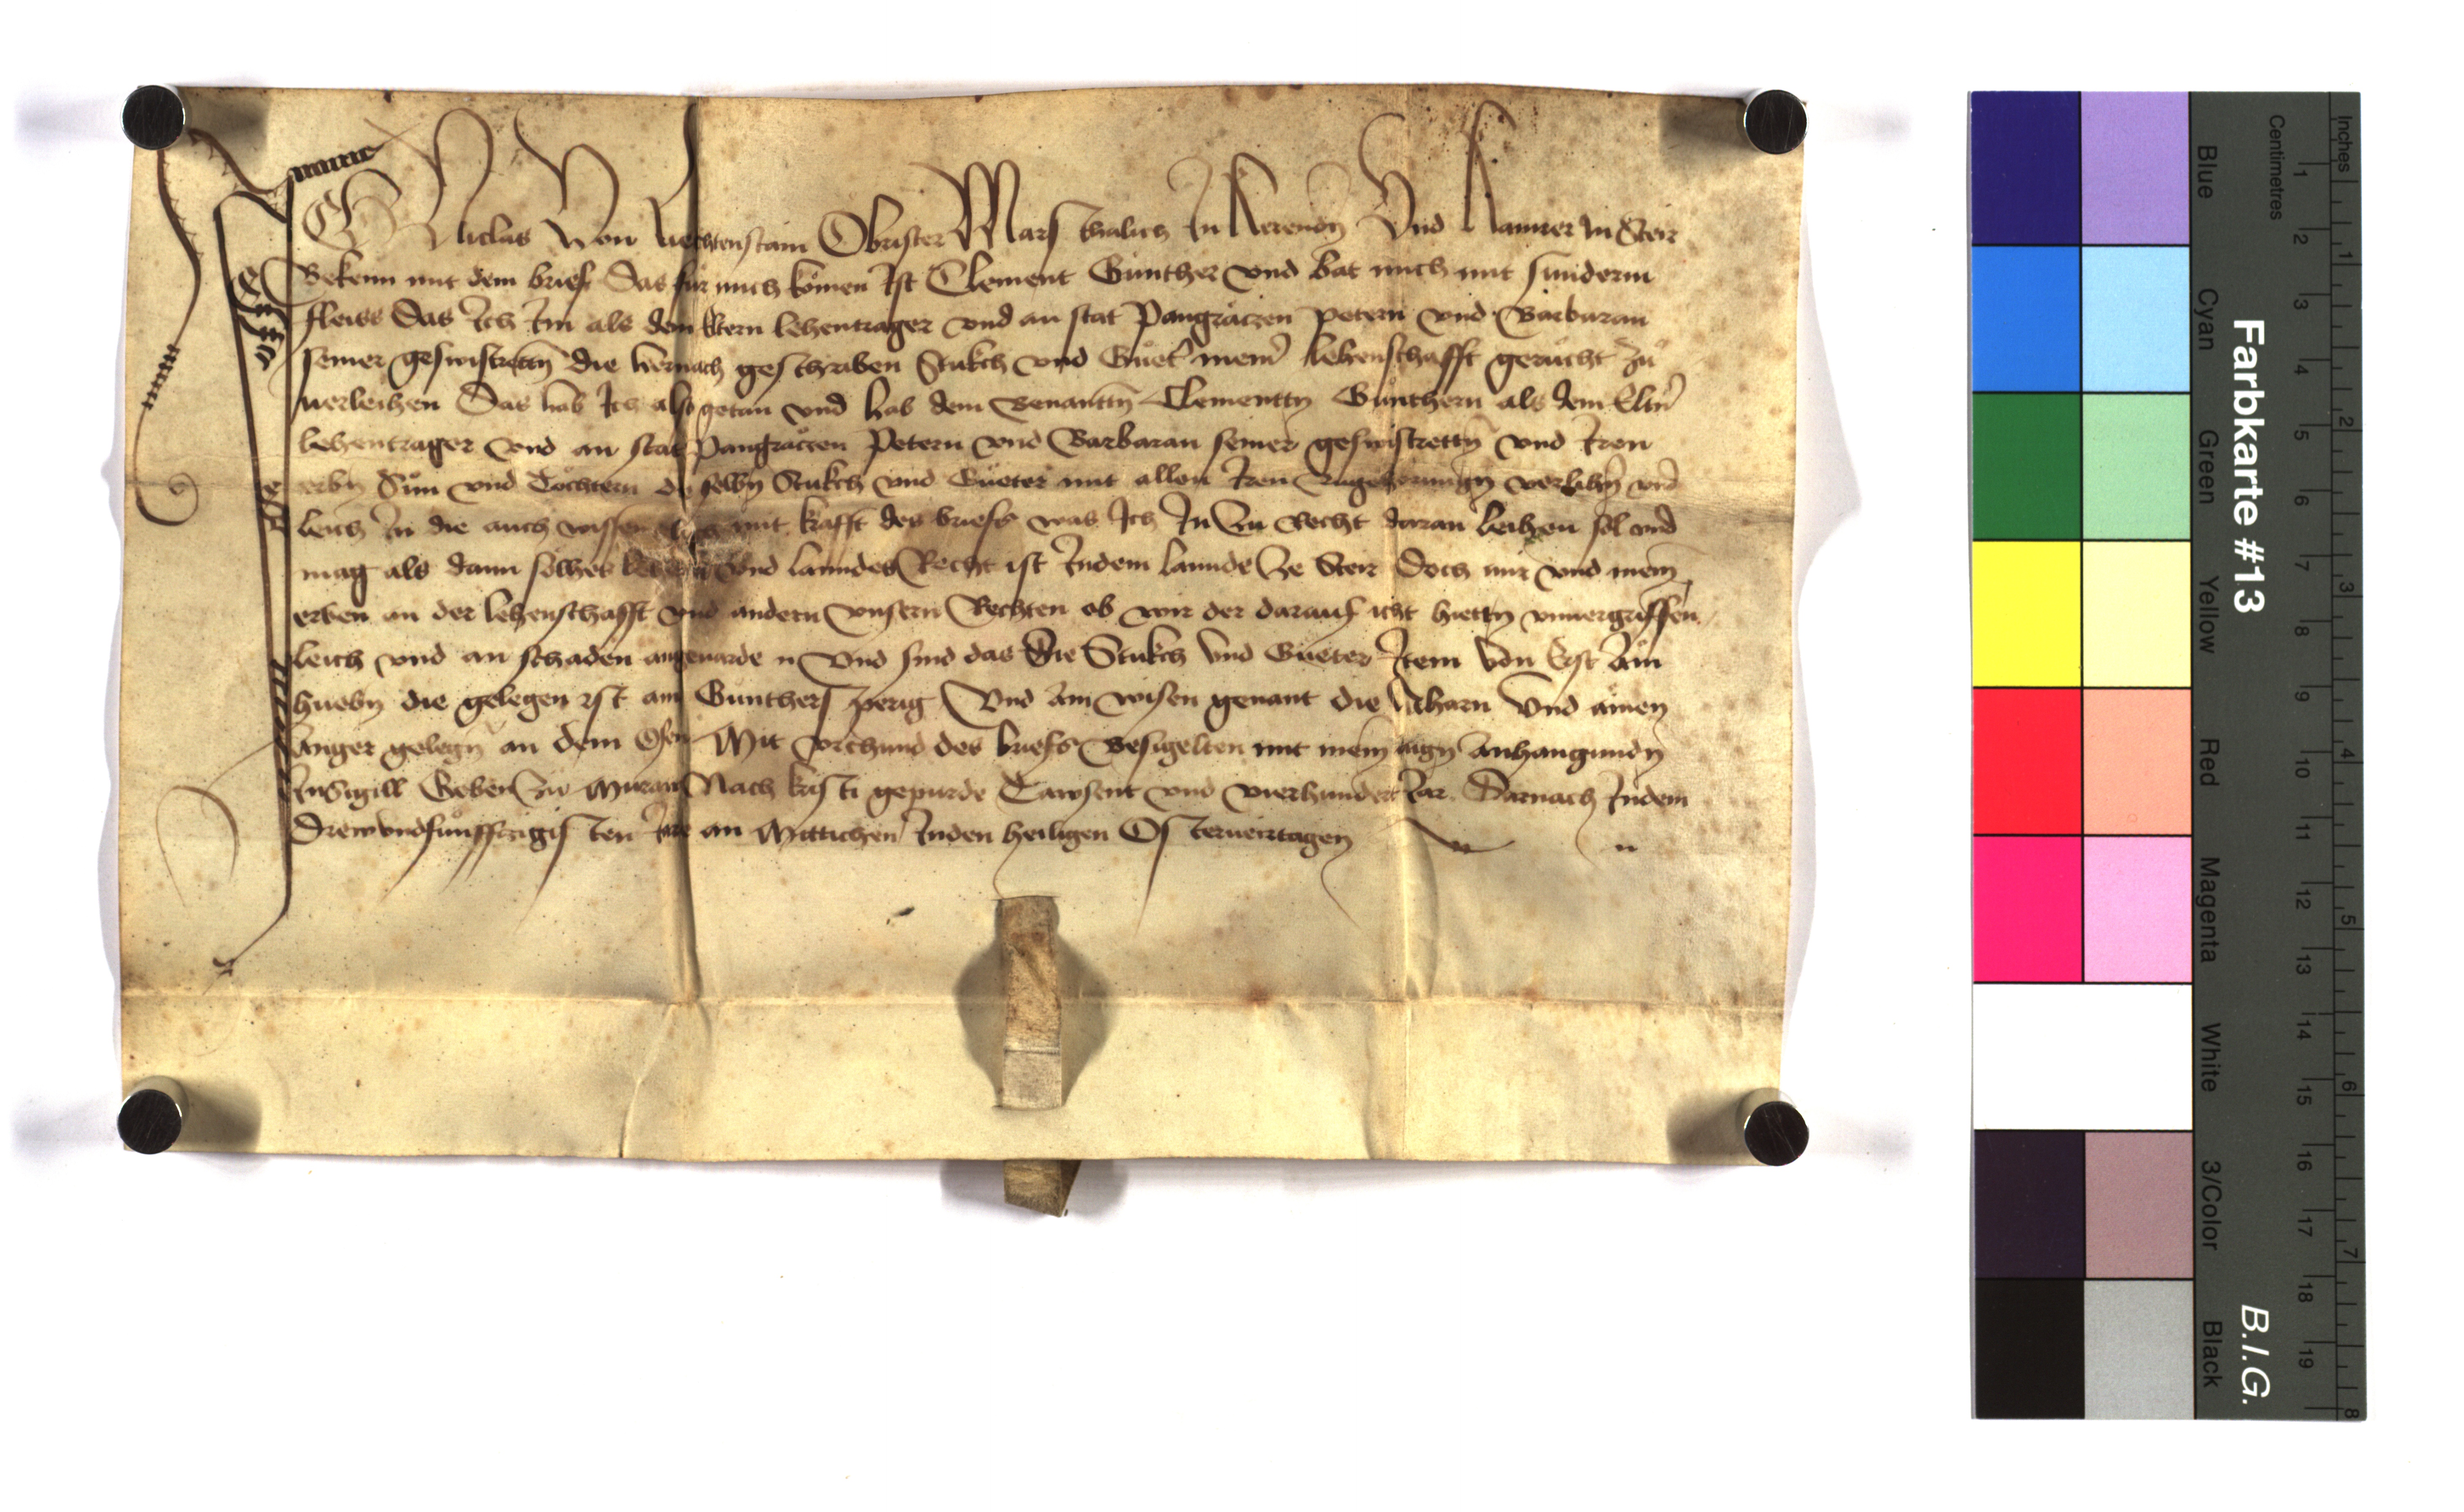 Ich Niclas Von Liechtenstain Obrister Marschalich In Kerendn Vnd Kamrer in Steir
Bekenn mit dem brief Das fur mich komen Ist Clement Gunther vnd bat mich mit sunderm
fleiss Das Ich Im als dem Eltern lehentrager vnd an stat Pangräczen Petern vnd Barbaran
seiner geswistrettn die hernach geschriben Stukch vnd Guet meinr lehenschafft gerücht zu
uerleihen Das hab Ich also getan vnd hab dem benantn Clementtn Gunthern als dem Eltn
lehentrager vnd an stat Pangräcen Petern vnd Barbaran seiner geswistrettn vnd Iren
erbn Sün vnd Töchtern die selbn Stukch vnd Güeter mit allen Iren Zugehorungn verlihn vnd
leich In die auch wissen mit krafft des briefs was Ich In zu Recht daran leihen sol vnd
mag als dann solher vnd lanndes Recht ist Indem lannde ze Steir Doch mir vnd mein
erben an der lehenschafft vnd andern vnsern Rechten ob wir der darauf icht hettn vnuergriffen
leich vnd an schaden angeuärde Vnd sind das Die Stukch vnd Güeter Item von Erst Ain
huebn die gelegen ist am Gunthersperig Vnd Ain wisen genant die Vnd ainen
Anger gelegn an dem Ofen Mit vrchund des briefs Besigelten mit mein aign Anhangundn
Insigill Geben zu Muraw Nach kristi gepurde Tawsent vnd vierhundert Iar Darnach Indem
Drewvndfunfftzigisten Iare an Mittichen Inden heiligen Osterueirtagen
Blue
Cyan
Green
Yellow
Red
Magenta
White
3/Color
Black
Farbkarte #13
B.I.G.
Centimetres
1 2 3 4 5 6 7 8 9 10 11 12 13 14 15 16 17 18 19
Inches
1 2 3 4 5 6 7 8